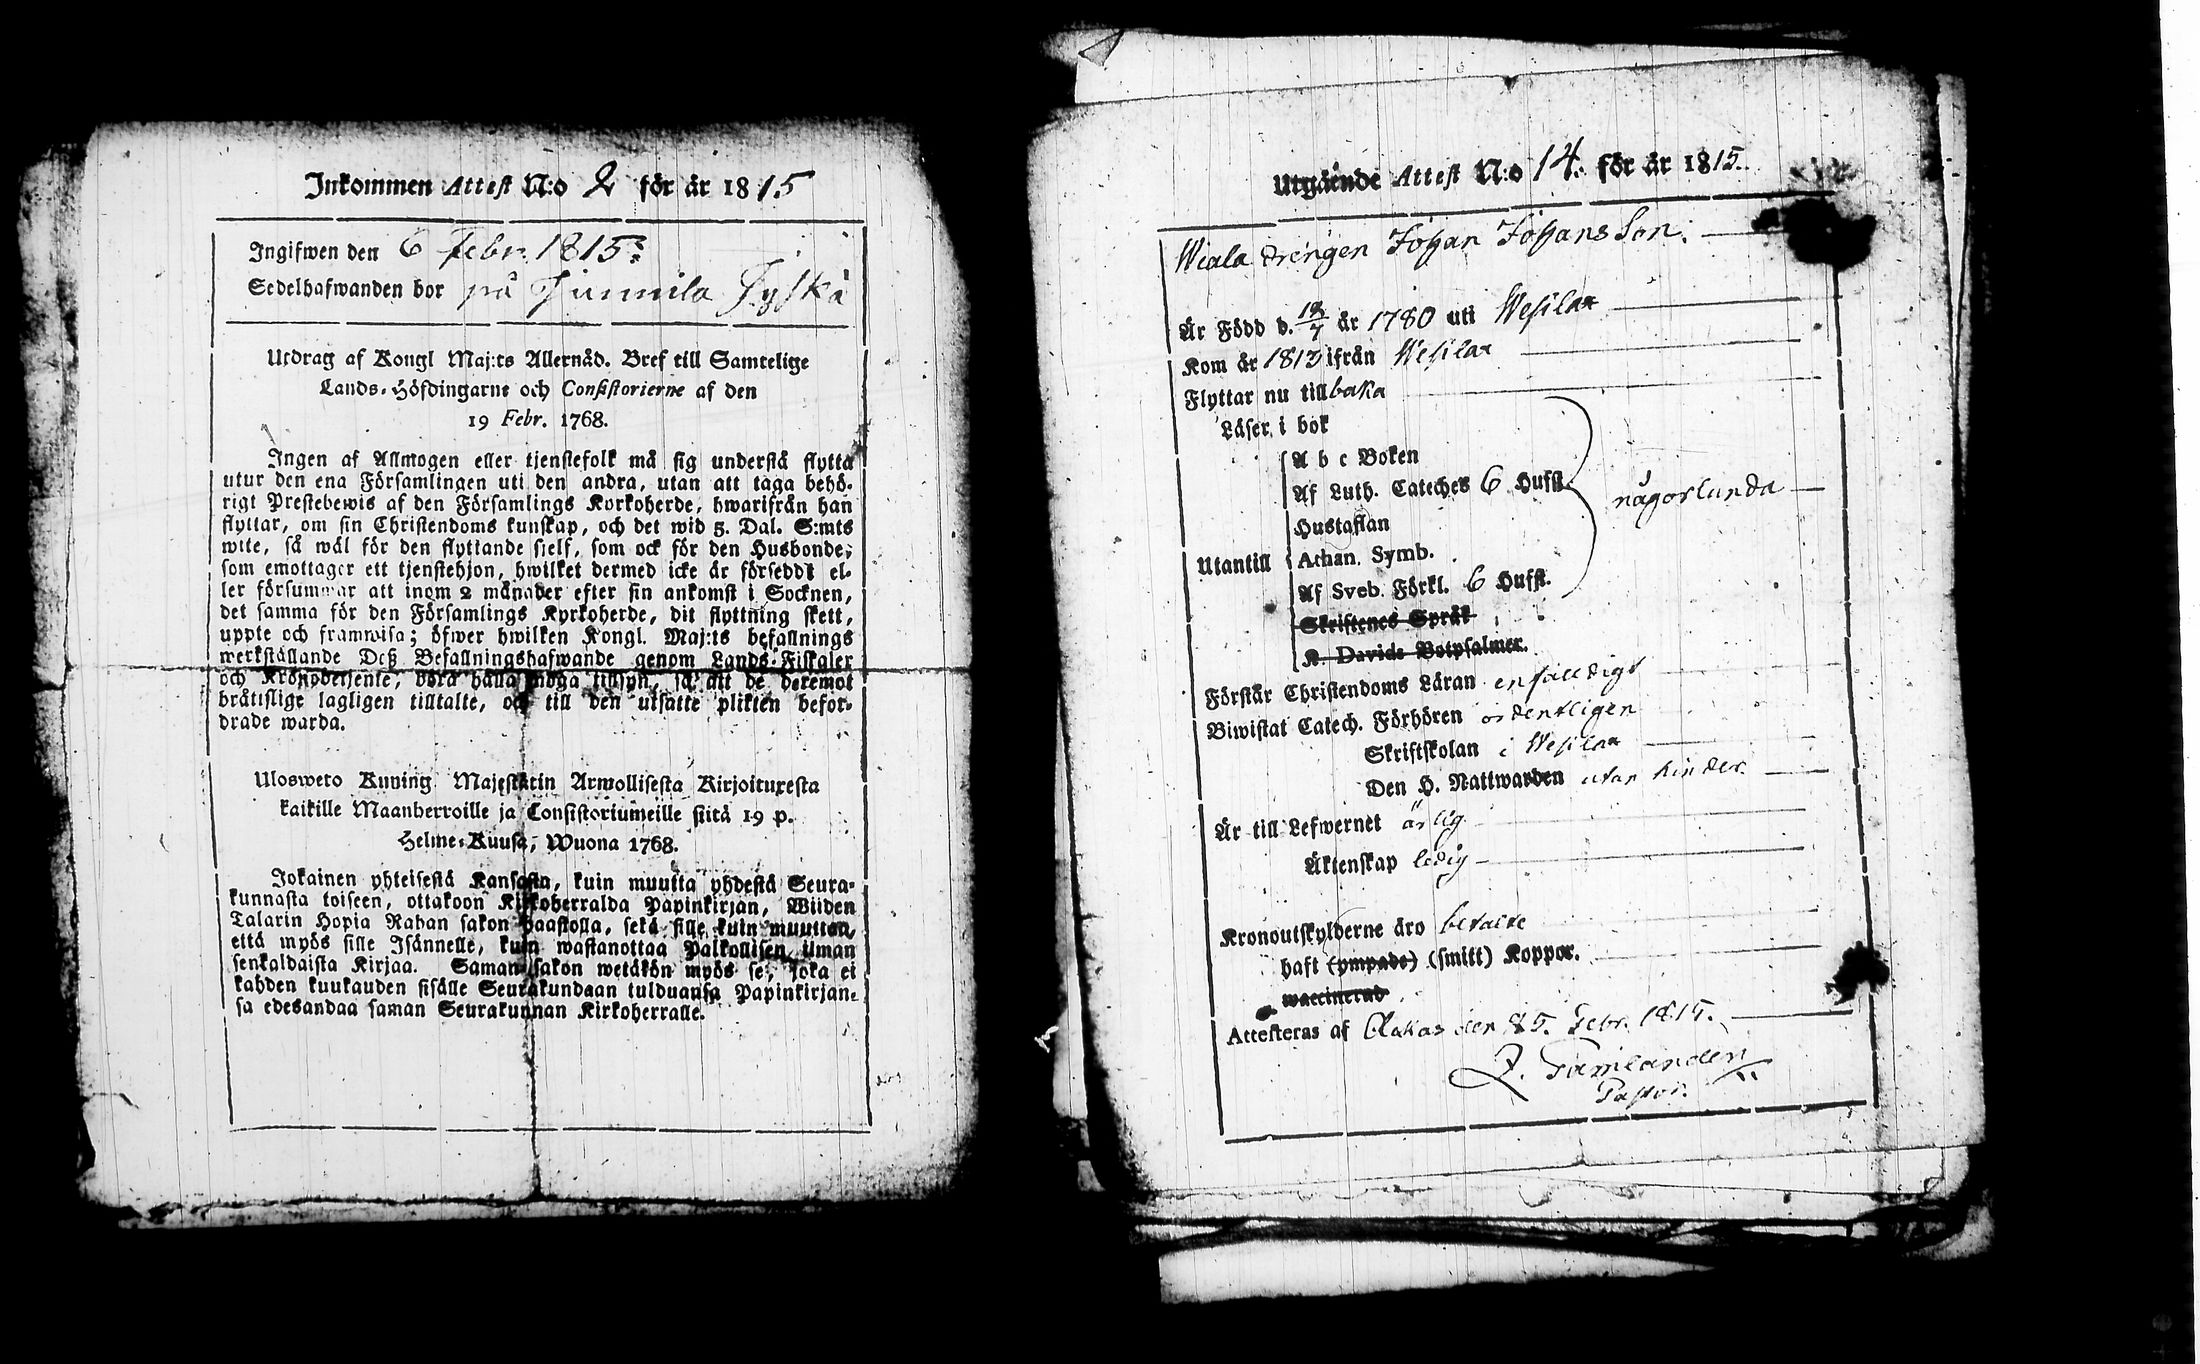 Inkommen Attest N:o 2 för år 1815
Ingifwen den 6 Febr. 1815:
Sedelhafwanden bor på
Utdrag af Kongl Maj:ts Allernåd. Bref till Samtelige
Lands-Höfdingarne och Consistorierne af den
19 Febr. 1768.
Ingen af Allmogen eller tjenstefolk må sig understå flytta
utur den ena Församlingen uti den andra, utan att taga behö-
rigt Prestebewis af den Församlings Kyrkoherde, hwarifrån han
flyttar, om sin Christendoms kunskap, och det wid 5. Dal. S:mts
wite, så wäl för den flyttande sielf, som ock för den Husbonde,
som emottager ett tjenstehjon, hwilket dermed icke är försedd; el-
ler försummar att inom 2 månader efter sin ankomst i Socknen,
det samma för den Församlings Kyrkoherde, dit flyttning skett,
uppte och framwisa; öfwer hwilken Kongl. Maj:ts befallnings
werkställande Deß Befallningshafwande genom Lands-Fiskaler
och Kronobetjente, böra hålla noga tillsyn, så att de deremot
bråttslige lagligen tilltalte, och till den utsatte plikten befor-
drade warda.
Ulosweto Kuning. Majestätin Armollisesta Kirjoituxesta
kaikille Maanherroille ja Consistoriumeille siitä 19 p.
Helme-Kuusa, Wuona 1768.
Jokainen yhteisestä Kansasta, kuin muutta yhdestä Seura-
kunnasta toiseen, ottakoon Kirkoherralda Papinkirjan, Wiiden
Talarin Hopia Rahan sakon haastolla, sekä sille kuin muuttaa,
että myös sille Isännelle, kuin wastanottaa Palkollisen ilman
senkaldaista Kirjaa. Saman sakon wetäkön myös se, joka ei
kahden kuukauden sisälle Seurakundaan tulduansa Papinkirjan-
sa edesandaa saman Seurakunnan Kirkoherralle.
Utgående Attest N:o 14. för år 1815.
Wiala drengen Johan Johans Son.
Är Född d. 12/7 år 1780 uti Wesilax
Kom år 1813 ifrån Wesilax
Flyttar nu tillbaka
Läser i bok
A b c Boken
Af Luth. Cateches 6 Hufst.
någorlunda
Hustaflan
Utantill Athan. Symb.
Af Sveb. Förkl. 6 Hufst.
Skriftenes Språk
K. Davids Botpsalmer.
Förstår Christendoms Läran enfalldigt
Biwistat Catech. Förhören ordentligen
Skriftskolan i Wesilax
Den H. Nattwarden utan hinder.
Är till Lefwernet ärlig
Äktenskap ledig
Kronoutskylderne äro betalte
haft (ympade) (smitt) Koppor.
waccinerad
Attesteras af Akkas den 5. Febr. 1815.
Pastor.